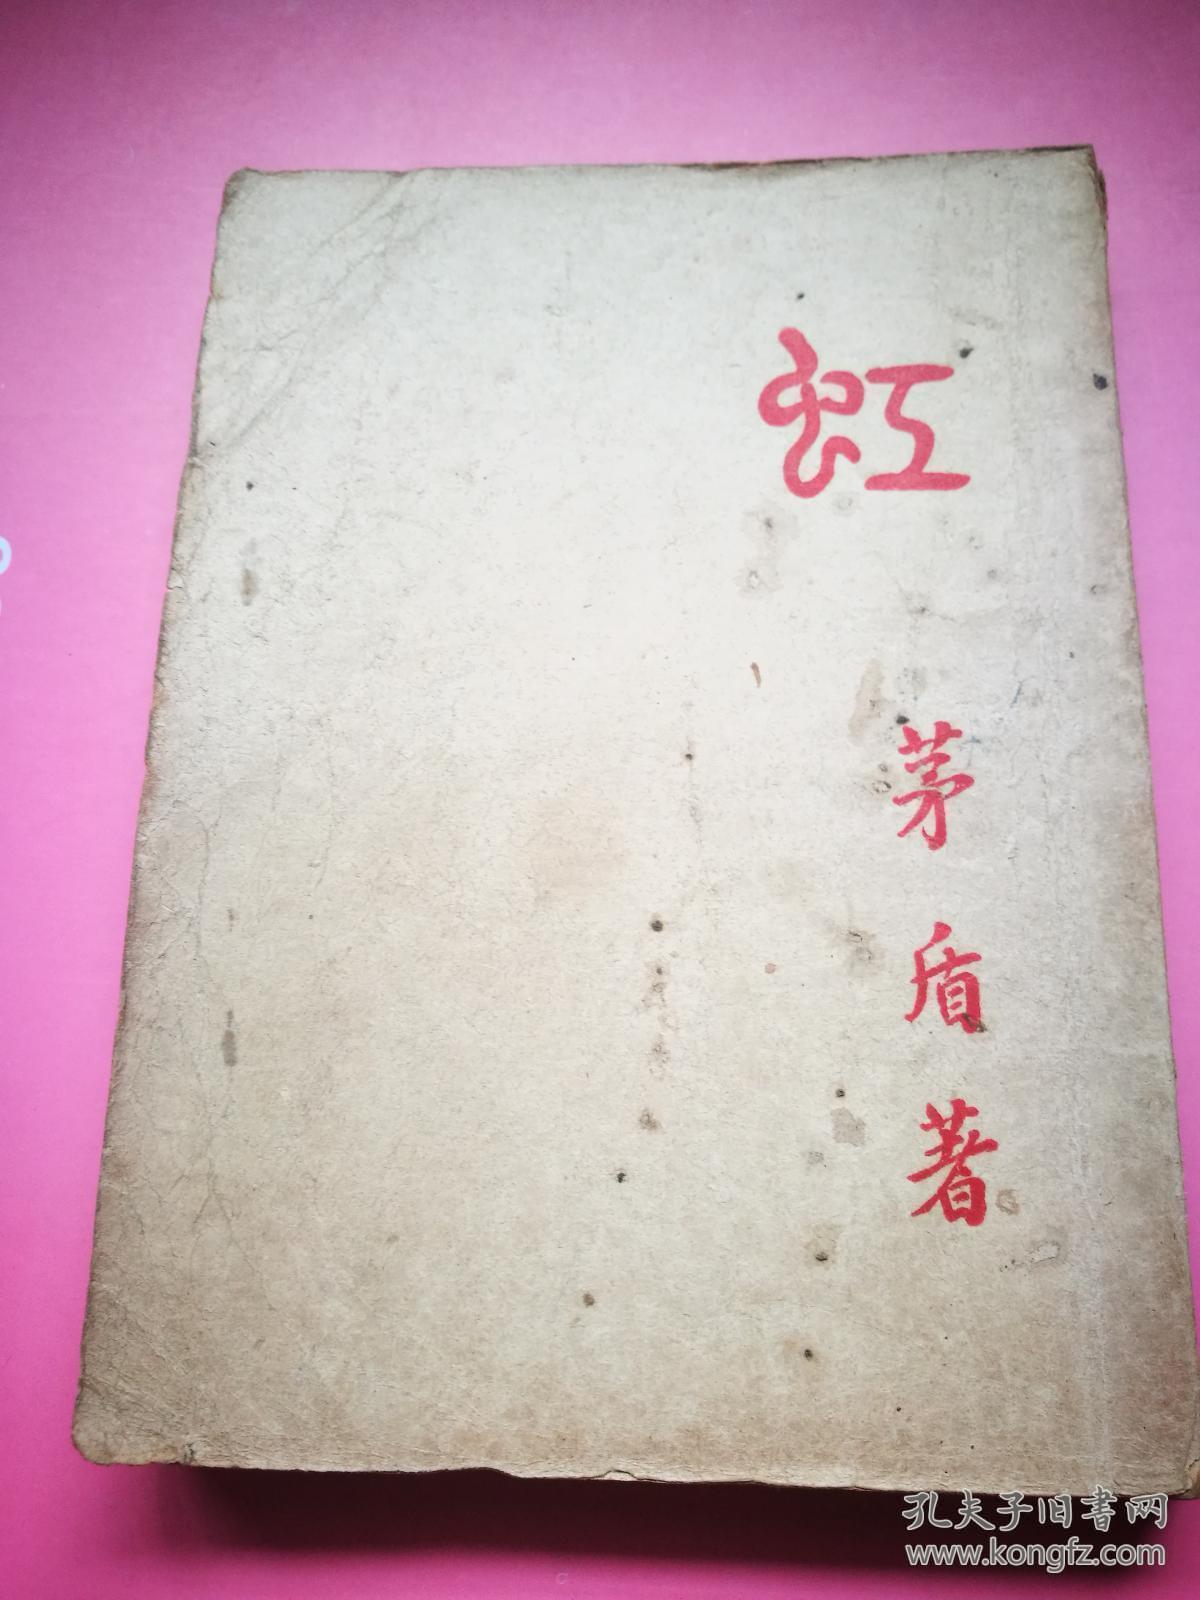 虹
茅盾著
孔夫子旧書网
www.kongfz.com